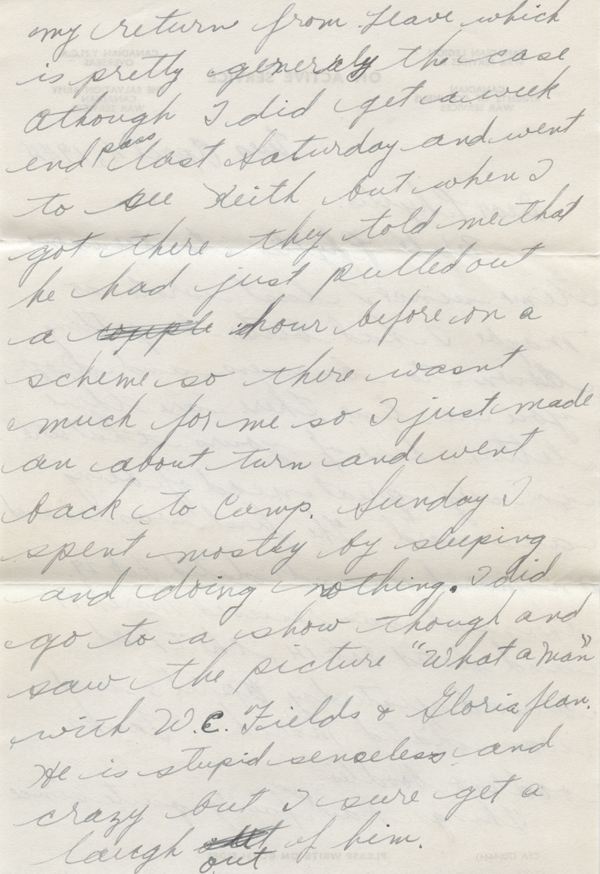 my return from leave which
is pretty generaly the case
Athough I did get a week
end pass last Saturday and went
to see Keith but when I
got there they told me that
he had just pulled out
a couple hour before on a
scheme so there wasnt
much for me so I just made
an about turn and went
back to Camp. Sunday I
spent mostly by sleeping
and doing nothing. I did
go to a show though and
saw the picture "What a Man"
with W.C. Fields & Gloria Jean.
He is stupid senseless and
crazy but I sure get a
laugh out of him.